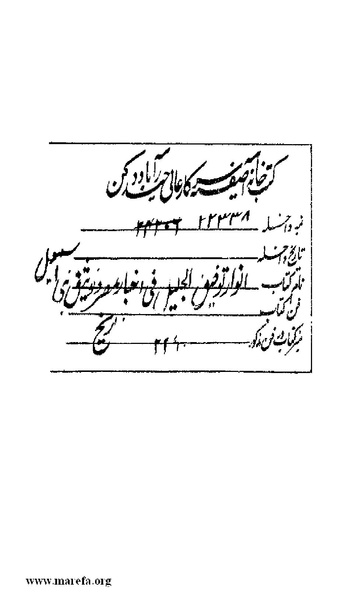 کتب خانه آصفیه سرکار عالی حیدرآباد دکن
نمبر داخله ۲۲۳۳۸
تاریخ داخله
نام کتاب انوار توفیق الجلیل فی اخبار مصر وتوثیق بنی اسمعیل
فن کتاب تاریخ
نمبر کتاب در فن مذکور
www.marefa.org